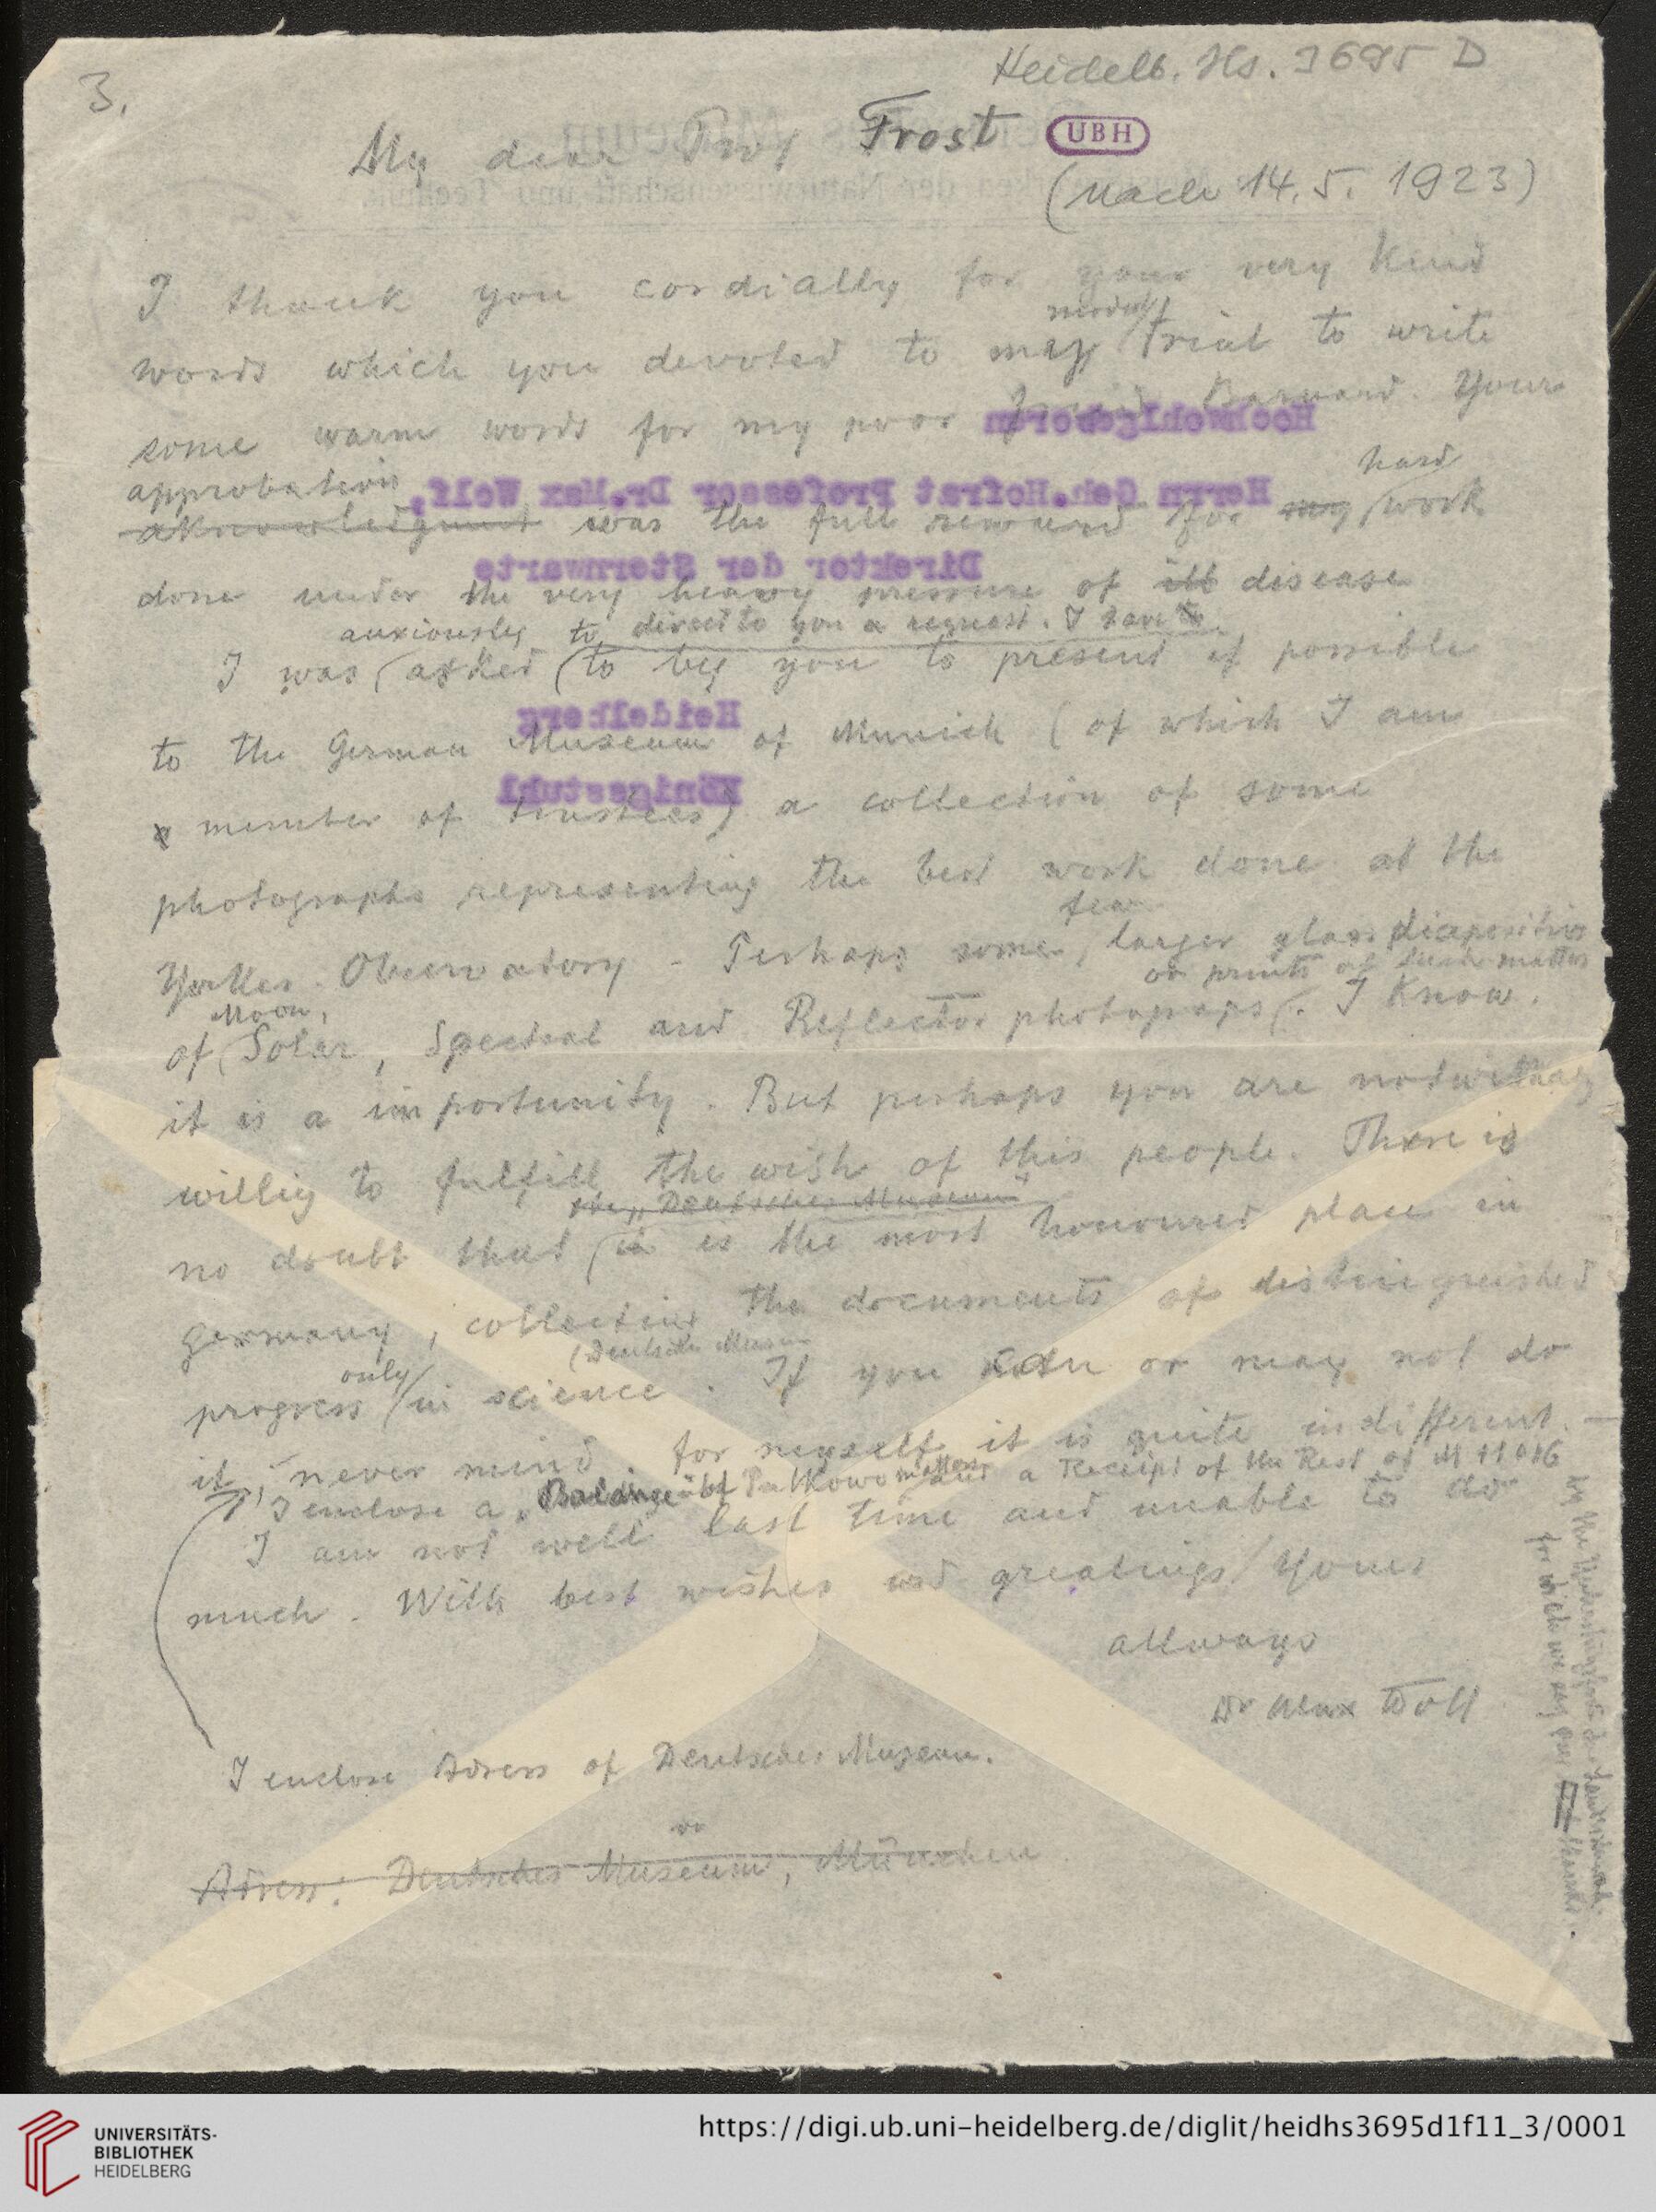 Heidelb. Hs. 3695 D
3.
My dear Prof Frost
UBH
(nach 14. 5. 1923)
I thank you cordially for your very kind
modest
words which you devoted to my trial to write
some warm words for my poor friend Barnard. Your
approbation hard
aknowledgment was the full reward for my work
done under the very heavy pressure of ill disease
anxiously to direct to you a request. I have to
I was asked to beg you to present if possible
to the German Museum of Munich (of which I am
a member of trustees) a collection of some
photographs representing the best work done at the
few
Yerkes Observatory - Perhaps some, larger glass diapositives
or prints of such matter
Moon,
of Solar, Spectral and Reflector photograps. I know.
it is a importunity. But perhaps you are notwithstg
willig to fulfill the wish of this people. There is
the "Deutsches Museum"
no doubt that it is the most honoured place in
germany, collecting the documents of distinguished
(Deutsches Museum
only
progress in science. If you can or may not do
it, never mind. for myself it is quite indifferent. —
I enclose a Pulkowo matters and a Receipt of the Rest of M 11016
I am not well last time and unable to do
much. With best wishes and greatings/ Yours
allways
Dr Max Wolf
I enclose Adress of Deutsches Museum.
Adress: Deutsches Museum, München
by the
for which we say
Hochwohlgeboren
Herrn Geh.Hofrat Professor Dr.Max Wolf,
Direktor der Sternwarte
Heidelberg
Königsstuhl
Deutsches Museum
von Meisterwerken der Naturwissenschaft und Technik
UNIVERSITÄTS-
BIBLIOTHEK
HEIDELBERG
https://digi.ub.uni-heidelberg.de/diglit/heidhs3695d1f11_3/0001